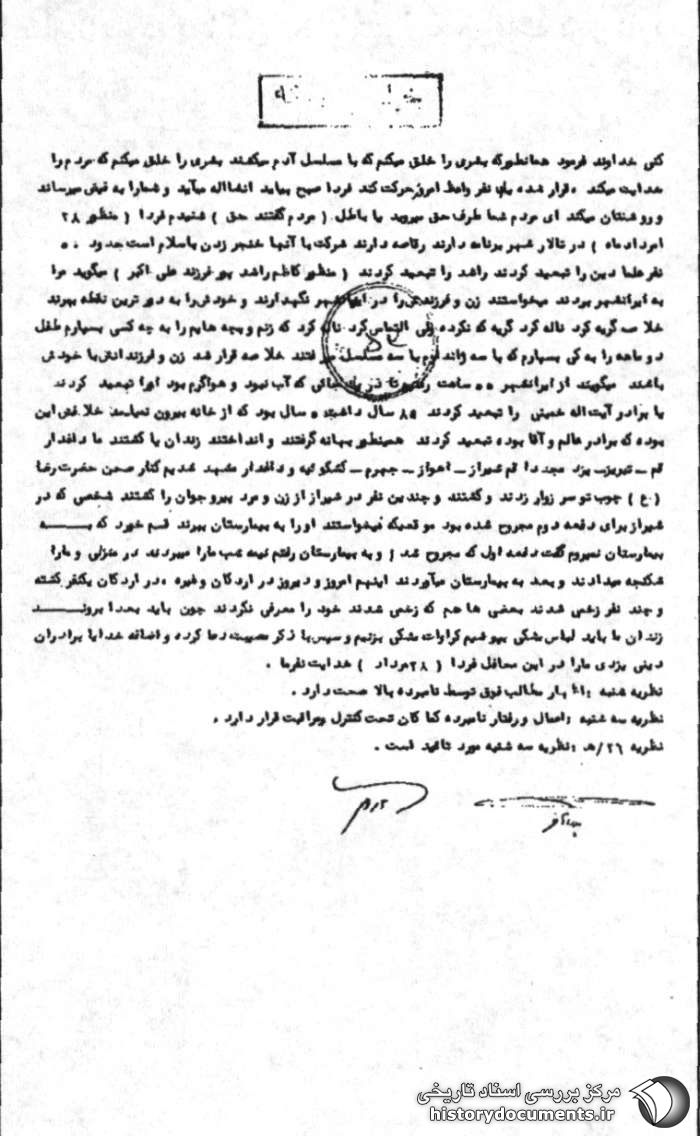 کنی خداوند فرمود همانطوریکه بشری را خلق میکنم که با مسلسل آدم میکشد بشری را خلق میکنم که مردم را
هدایت میکند ، قرار شده نفر واعظ امروز حرکت کند فردا صبح بیاید انشااله میآید و شما را به فیض میرساند
و روشنتان میکند ای مردم شما طرف حق میروید یا باطل ( مردم گفتند حق ) شنیدم فردا ( منظور ۲۸
امرداد ماه ) در تالار شهر برنامه دارند رقاصه دارند شرکت با آنها خنجر زدن باسلام است حدود ۵۰
نفر علما دین را تبعید کردند راشد را تبعید کردند ( منظور کاظم راشد پور فرزند علی اکبر ) میگوید مرا
به ایرانشهر بردند میخواستند زن و فرزندش را در شهر نگهدارند و خودش را به دور ترین نقطه ببرند
خلاصه گریه کرد ناله کرد گریه که نکرده ولی التماس کرد ناله کرد که زنم و بچه هایم را به چه کسی بسپارم طفل
دو ماهه را به کی بسپارم که با سه واندارم با سه مسلسل میرفتند خلاصه قرار شد زن و فرزندانش با خودش
باشند میگویند از ایرانشهر ساعت رفتیم تا که آب نبود و هوا گرم بود اورا تبعید کردند
یا برادر آیت اله خمینی را تبعید کردند ۸۵ سال داشت سال بود که از خانه بیرون نمیآمد خلافش این
بوده که برادر عالم و آقا بوده تبعید کردند همینطور بهانه گرفتند و انداختند زندان یا کشتند ما داغدار
قم ـ تبریز ـ یزد مجددا قم شیراز ـ اهواز ـ جهرم ـ کشکوئیه و داغدار مشهد شدیم کنار صحن حضرت رضا
(ع) چوب تو سر زوار زدند و کشتند و چندین نفر در شیراز از زن و مرد پیر و جوان را کشتند شخصی که در
شیراز برای دفعه دوم مجروح شده بود موقعیکه میخواستند او را به بیمارستان ببرند قسم خورد که به
بیمارستان نمیروم گفت دفعه اول که مجروح شدم و به بیمارستان رفتم نیمه شب مارا میبردند در منزلی و مارا
شکنجه میدادند و بعد به بیمارستان میآوردند اینهم امروز و دیروز در اردکان وغیره ، در اردکان یکنفر کشته
و چند نفر زخمی شدند بعضی ها هم که زخمی شدند خود را معرفی نکردند چون باید بعدا بروند
زندان ما باید لباس مشکی بپوشیم کراوات مشکی بزنیم و سپس با ذکر مصیبت دعا کرده و اضافه خدایا برادران
دینی یزدی مارا در این محافل فردا ( ۲۸ مرداد ) هدایت نفرما .
نظریه شنبه : مطالب فوق توسط نامبرده بالا صحت دارد .
نظریه سه شنبه : اعمال و رفتار نامبرده کماکان تحت کنترل ومراقبت قرار دارد .
نظریه ۲۶/ه : نظریه سه شنبه مورد تائید است .
مرکز بررسی اسناد تاریخی
historydocuments.ir